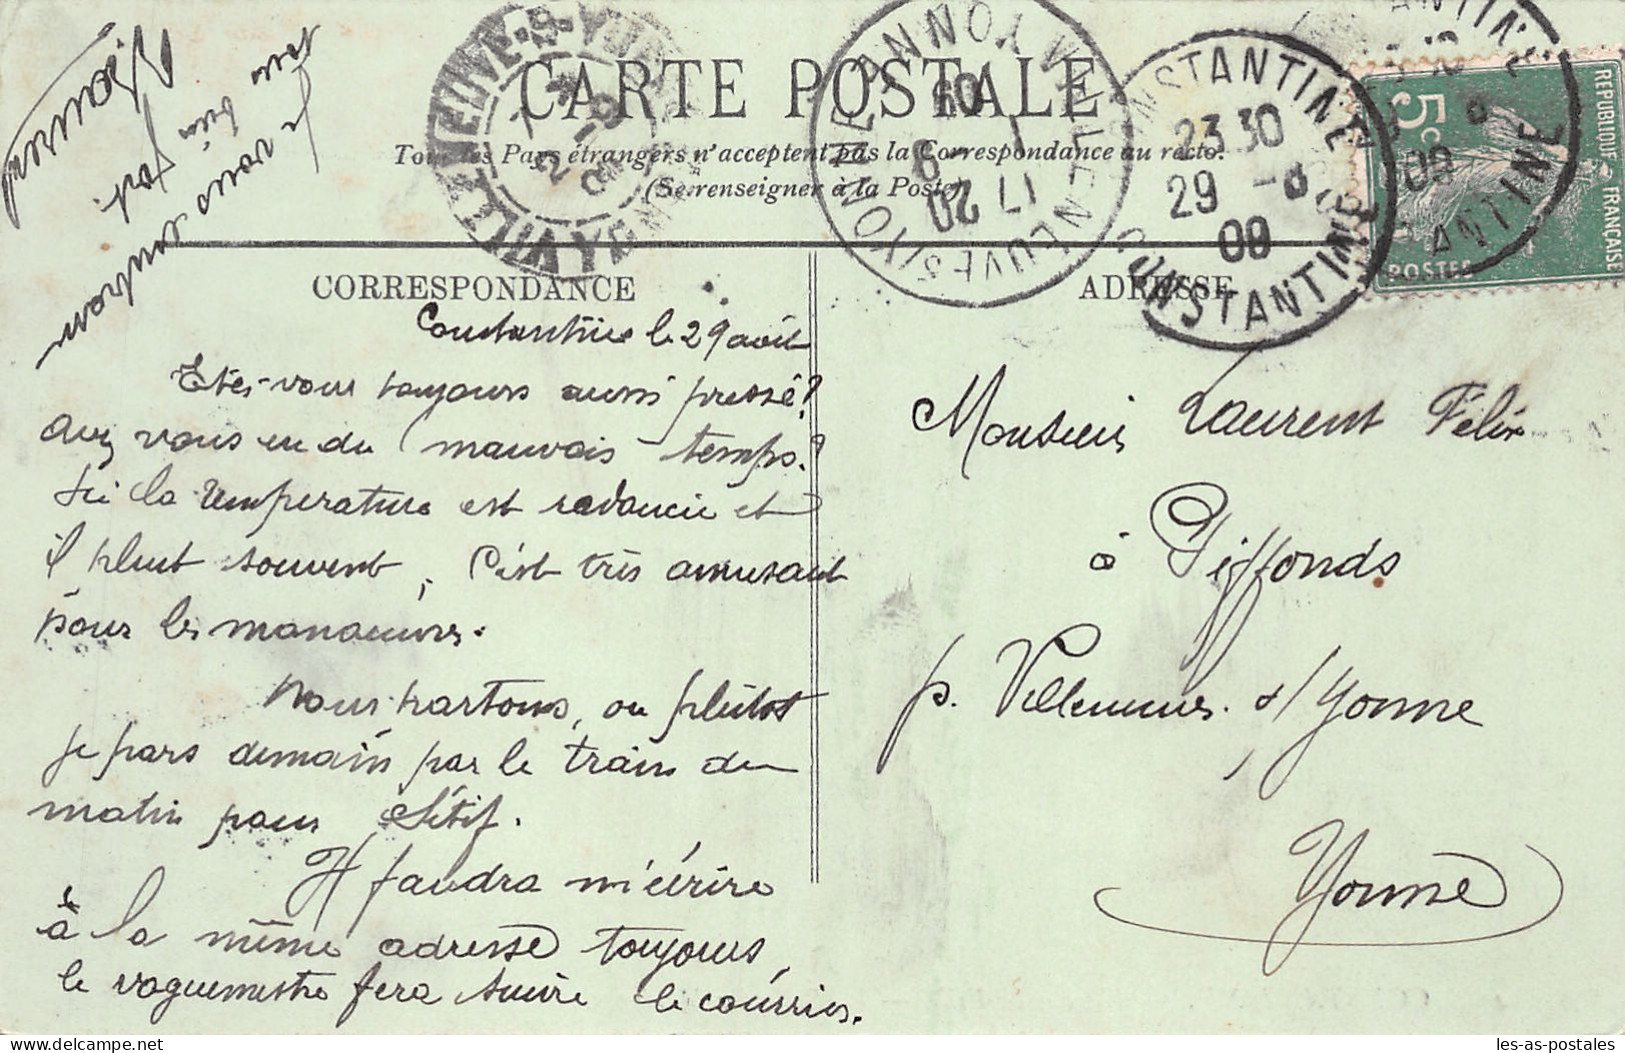 CARTE POSTALE
Tous les Pays étrangers n'acceptent pas la Correspondance au recto.
(Se renseigner à la Poste)
REPUBLIQUE FRANÇAISE
5c
POSTES
CONSTANTINE
23 30
29 -8
09
CONSTANTINE
VILLENEUVE S YONNE
YONNE
17 20
CORRESPONDANCE
ADRESSE
Je vous
bien fort
Constantine le 29 août
Etes-vous toujours aussi pressé?
Avez vous eu du mauvais temps?
Ici la température est radoucie et
il pleut souvent, c'est très amusant
pour les manœuvres.
Nous partons, ou plutôt
je pars demain par le train du
matin pour Sétif.
Il faudra m'écrire
à la même adresse toujours,
le vaguemestre fera suivre le courrier.
Monsieur Laurent Félix
à Piffonds
p. Villeneuve s/Yonne
Yonne
les-as-postales